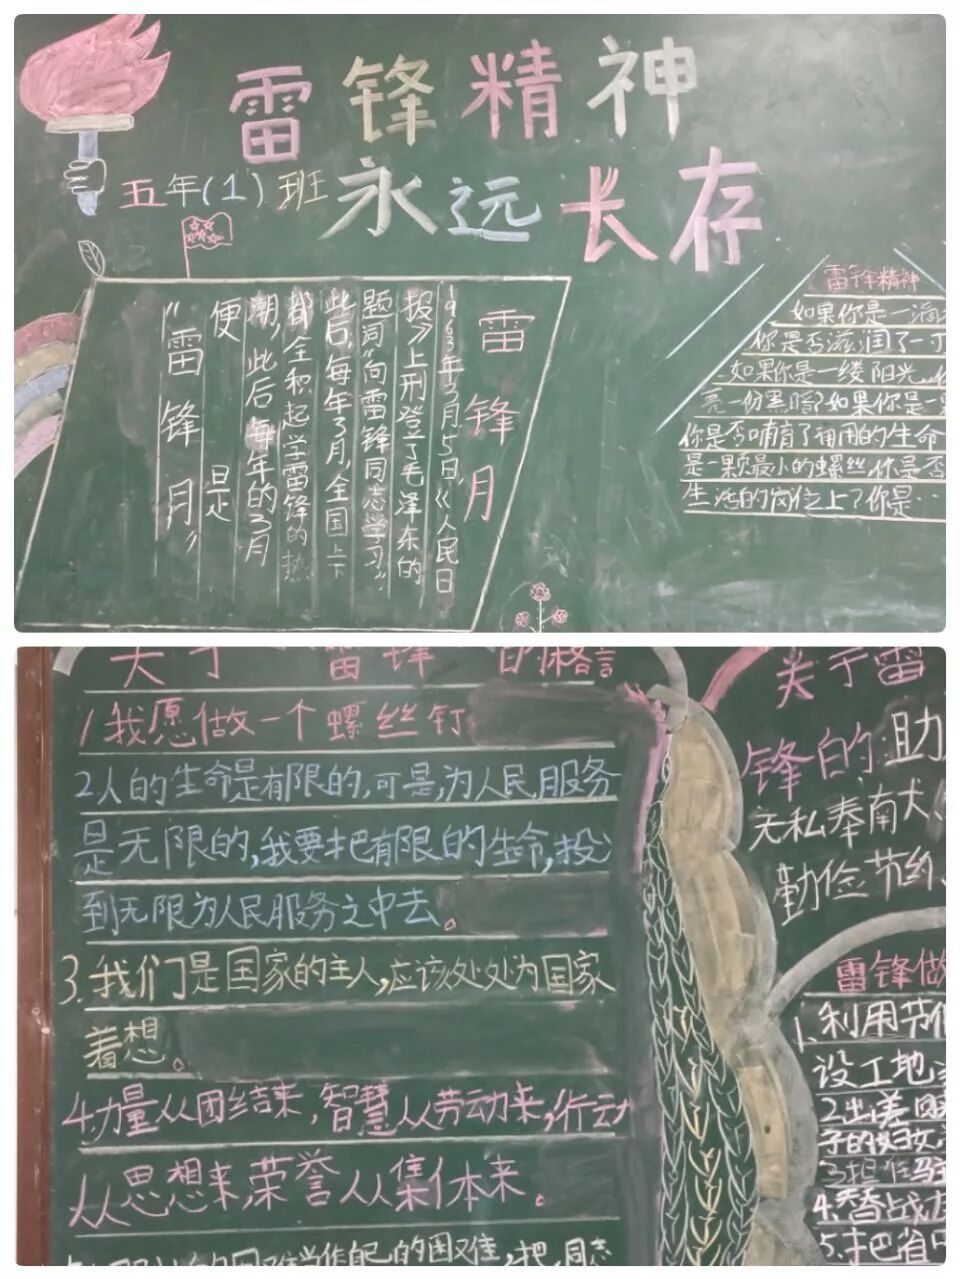 雷锋精神
永远长存
五年(1)班
雷锋月
1963年3月5日,《人民日
报》上刑登了毛泽东的
题词“向雷锋同志学习”.
此后,每年3月,全国上下
都全积起学雷锋的热
潮,此后每年的3月
便是
“雷锋月”
雷锋精神
如果你是一滴
你是否滋润了一寸
如果你是一缕阳光,
亮一份黑暗?如果你是一
你是否哺育了有用的生命
是一颗最小的螺丝,你是否
生活的岗位上?你是…
关于雷锋的格言
1.我愿做一个螺丝钉
2人的生命是有限的,可是,为人民服务
是无限的,我要把有限的生命,投
到无限为人民服务之中去。
3.我们是国家的主人,应该处处为国家
着想。
4.力量从团结来,智慧从劳动来,行动
从思想来,荣誉从集体来。
的困难当作自己的困难,把同志
关于雷
锋的:助
无私奉南犬、
勤俭节约、
雷锋做
1.利用节
设工地
2出差
子的妇女
3担任
4.替战友
5.把省